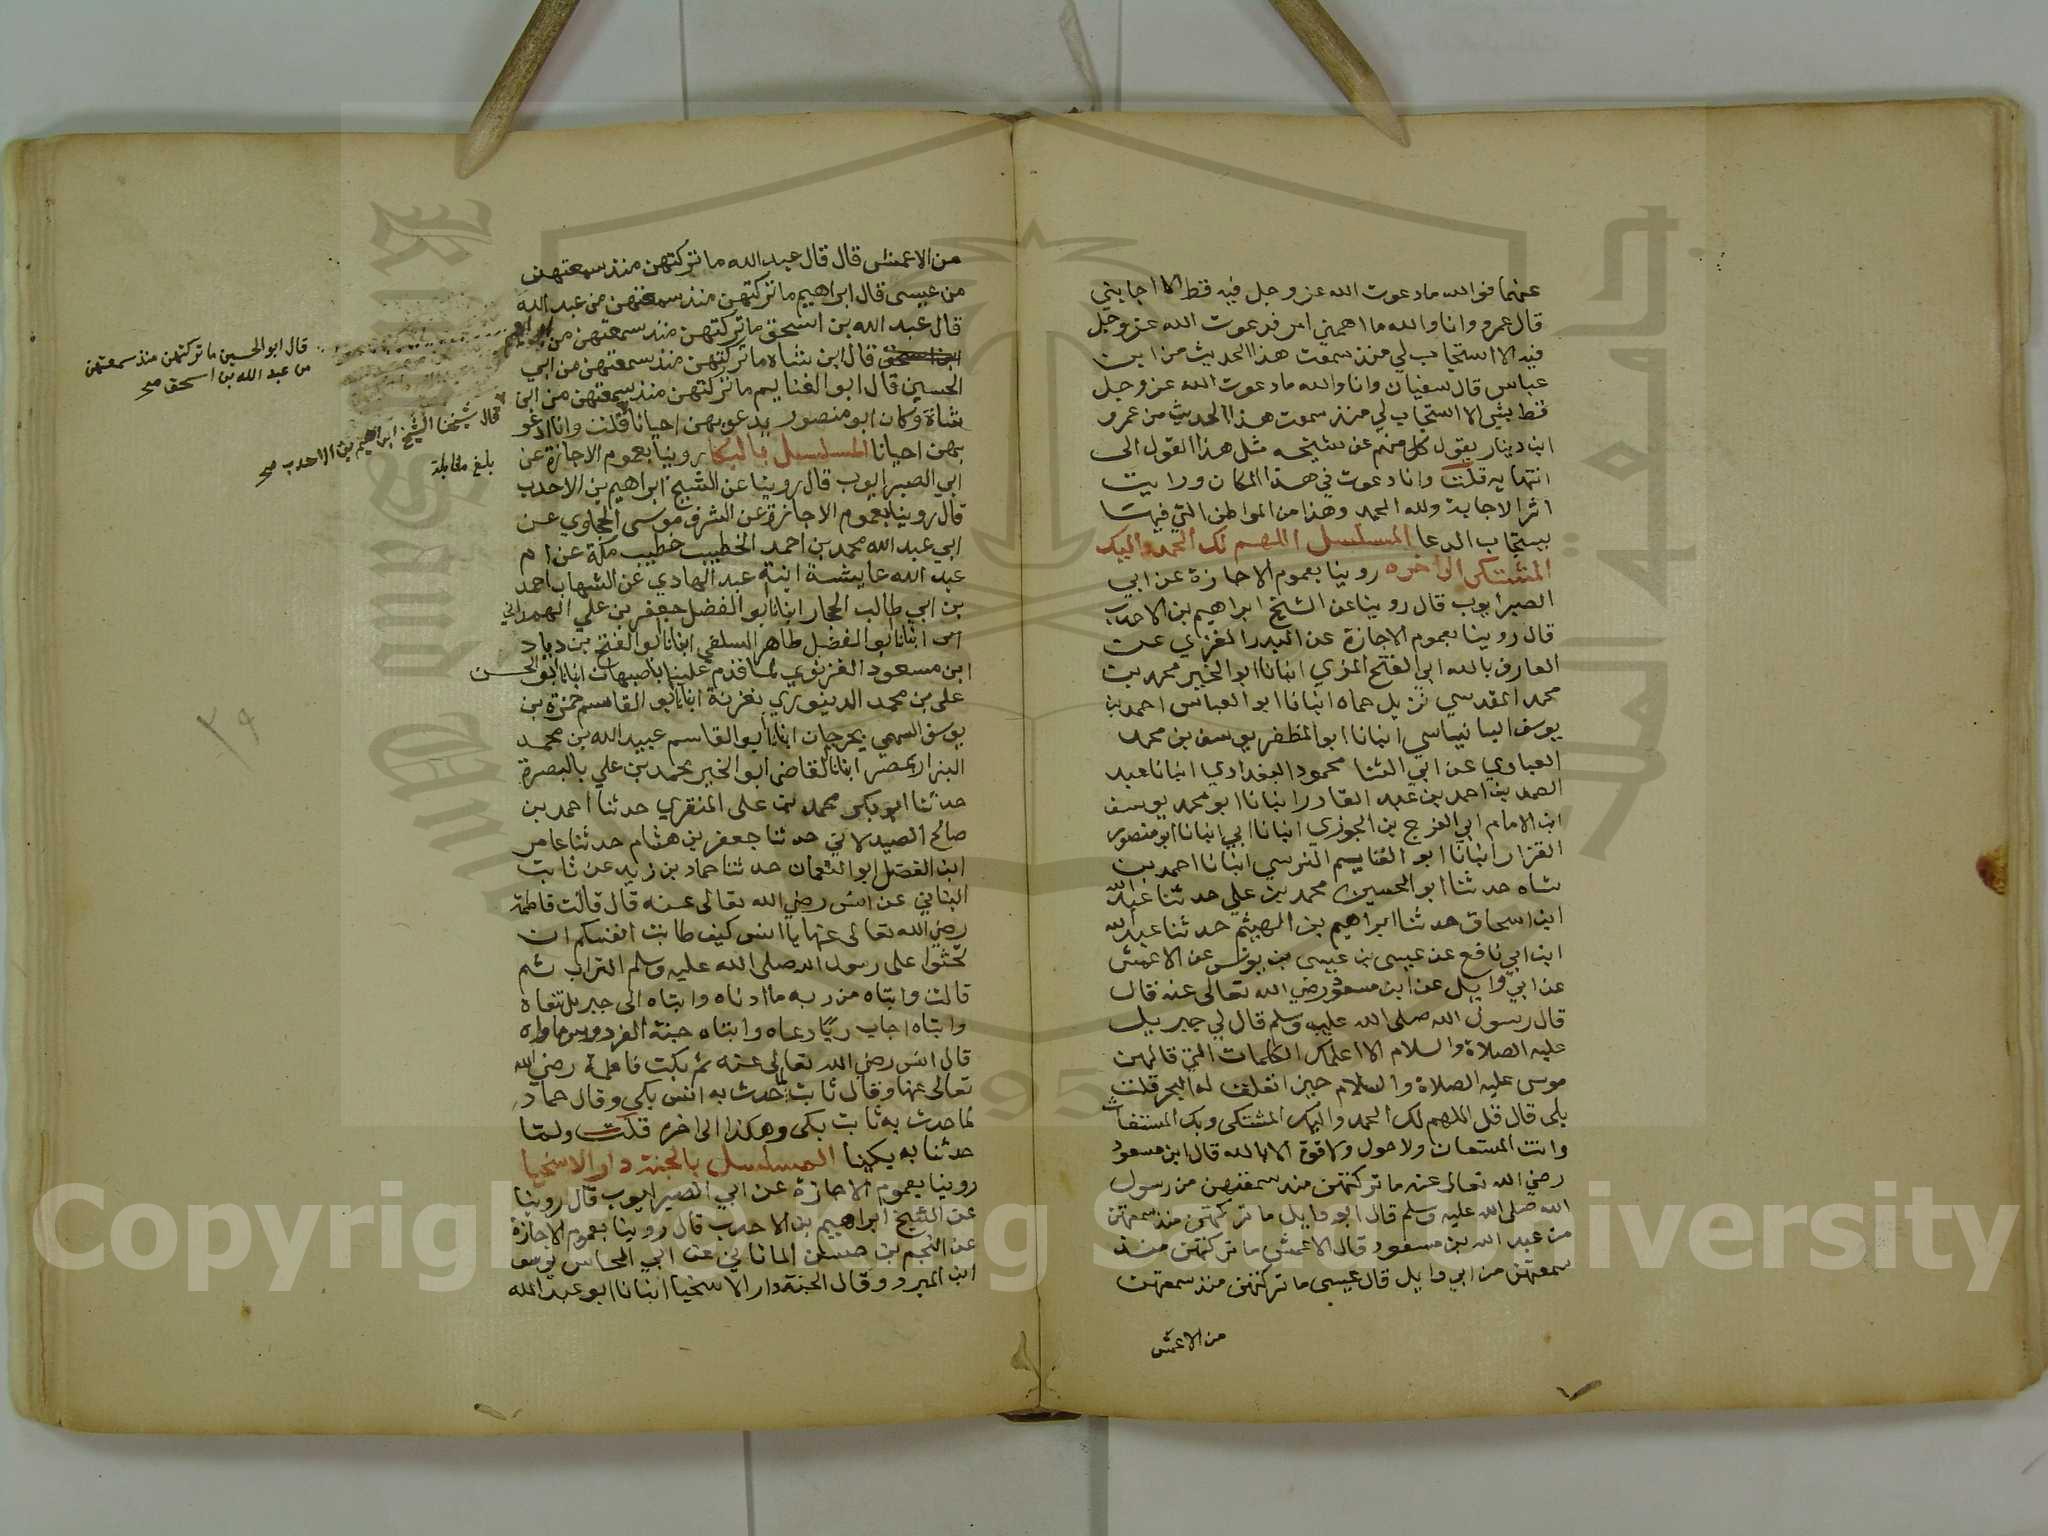 عنهما فوالله ما دعوت الله عز وجل فيه قط الا اجابني
قال عمرو وانا والله ما اهمني امر فدعوت الله عز وجل
فيه الا استجاب لي منذ سمعت هذا الحديث من ابن
عباس قال سفيان وانا والله ما دعوت الله عز وجل
قط بشي الا استجاب لي منذ سمعت هذا الحديث من عمرو
ابن دينار يقول كل منهم عن شيخه مثل هذا القول الى
انتهايه قلت وانا دعوت في هذا المكان ورايت
اثر الاجابة ولله الحمد وهذا من المواطن التي فيها
يستجاب الدعا المسلسل اللهم لك الحمد واليك
المشتكى الى اخره روينا بعموم الاجازة عن ابي
الصبر ايوب قال روينا عن الشيخ ابراهيم بن الاحدب
قال روينا بعموم الاجازة عن البدر الغزي عن
العارف بالله ابي الفتح المزي انبانا ابو الخير محمد بن
محمد المقدسي نزيل حماه انبانا ابو العباس احمد بن
يوسف البانياسي انبانا ابو المظفر يوسف بن محمد
العبادي عن ابي الثنا محمود البغدادي انبانا عبد
الصمد بن احمد بن عبد القادر انبانا ابو محمد يوسف
ابن الامام ابي الفرج بن الجوزي انبانا ابي انبانا ابو منصور
القزاز انبانا ابو الغنايم النرسي انبانا احمد بن
شاه حدثنا ابو الحسين محمد بن علي حدثنا عبد الله
ابن اسحاق حدثنا ابراهيم بن الهيثم حدثنا عبد الله
ابن ابي نافع عن عيسى بن عيسى بن يونس عن الاعمش
عن ابي وايل عن ابن مسعود رضي الله تعالى عنه قال
قال رسول الله صلى الله عليه وسلم قال لي جبريل
عليه الصلاة والسلام الا اعلمك الكلمات التي قالهن
موسى عليه الصلاة والسلام حين انفلق له البحر قلت
بلى قال قل اللهم لك الحمد واليك المشتكى وبك المستغاث
وانت المستعان ولا حول ولا قوة الا بالله قال ابن مسعود
رضي الله تعالى عنه ما تركتهن منذ سمعتهن من رسول
الله صلى الله عليه وسلم قال ابو وايل ما تركتهن منذ سمعتهن
من عبد الله بن مسعود قال الاعمش ما تركتهن منذ
سمعتهن من ابي وايل قال عيسى ما تركتهن منذ سمعتهن
من الاعمش
من الاعمش قال قال عبد الله ما تركتهن منذ سمعتهن
من عيسى قال ابراهيم ما تركتهن منذ سمعتهن من عبد الله
قال عبد الله بن اسحق ما تركتهن منذ سمعتهن من ابراهيم
ابن اسحق قال ابن شاه ما تركتهن منذ سمعتهن من ابي
الحسين قال ابو الغنايم ما تركتهن منذ سمعتهن من ابن
شاة وكان ابو منصور يدعو بهن احيانا قلت وانا ادعو
بهن احيانا المسلسل بالبكا روينا بعموم الاجازة عن
ابي الصبر ايوب قال روينا عن الشيخ ابراهيم بن الاحدب
قال روينا بعموم الاجازة عن الشرف موسى الحجاوي عن
ابي عبد الله محمد بن احمد الخطيب خطيب مكة عن ام
عبد الله عايشة ابنة عبد الهادي عن الشهاب احمد
بن ابي طالب الحجار انبانا ابو الفضل جعفر بن علي الهمداني
انبانا ابو الفضل طاهر السلفي انبانا ابو الفتح بن دباد
ابن مسعود الغزنوي لما قدم علينا باصبهان انبانا ابو الحسن
علي بن محمد الدينوري بغزنة انبانا ابو القاسم حمزة بن
يوسف السهمي بجرجان انبانا ابو القاسم عبيد الله بن محمد
البزار بمصر انبانا القاضي ابو الخير محمد بن علي بالبصرة
حدثنا ابو بكر محمد بن علي المنقري حدثنا احمد بن
صالح الصيدلاني حدثنا جعفر بن هشام حدثنا عامر
ابن الفضل ابو النعمان حدثنا حماد بن زيد عن ثابت
البناني عن انس رضي الله تعالى عنه قال قالت فاطمة
رضي الله تعالى عنها يا انس كيف طابت انفسكم ان
تحثوا على رسول الله صلى الله عليه وسلم التراب ثم
قالت وابتاه من ربه ما ادناه وابتاه الى جبريل تنعاه
وابتاه اجاب ربا دعاه وابتاه جنة الفردوس ماواه
قال انس رضي الله تعالى عنه ثم بكت فاطمة رضي الله
تعالى عنها وقال ثابت حدث به انس بكى وقال حماد
لما حدث به ثابت بكى وهكذا الى اخره قلت ولما
حدثنا به بكينا المسلسل بالجنة دار الاسخيا
روينا بعموم الاجازة عن ابي الصبر ايوب قال روينا
عن الشيخ ابراهيم بن الاحدب قال روينا بعموم الاجازة
عن النجم بن حسن الماتاني عن ابي المحاسن يوسف
ابن المبرد وقال الجنة دار الاسخيا انبانا ابو عبد الله
قال ابو الحسين ما تركتهن منذ سمعتهن
من عبد الله بن اسحق صح
قال شيخنا الشيخ ابراهيم بن الاحدب صح
بلغ مقابلة
٣٩
Copyright © King Saud University
1957